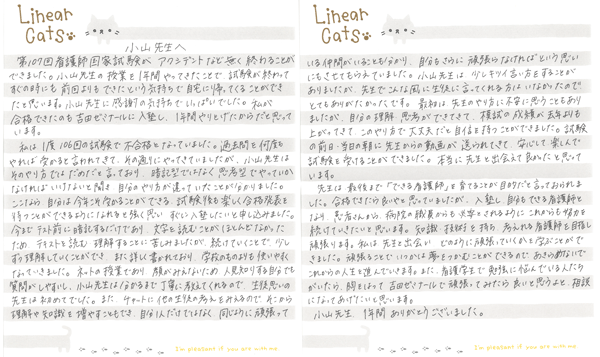 Linear
Cats
小山先生へ
第107回看護師国家試験が アクシデントなど無く終わることが
できました。小山先生の授業を1年間やってきたことで、試験が終わって
すぐの時にも前回よりもできたという気持ちで自宅に帰ってくることができ
たと思います。小山先生に感謝の気持ちでいっぱいでした。私が
合格できたのも吉田ゼミナールに入塾し、1年間やりとげたからだと思って
います。
私は1度106回の試験で不合格となっていました。過去問を何度も
やれば受かると言われてきて、その通りにやってきていましたが、小山先生は
そのやり方ではだめだと言っており、暗記型ではなく思考型でやっていか
なければいけないと聞き 自分のやり方が違っていたことが分かりました。
ここなら 自分は今年こそ受かることができる、試験後も楽しく合格発表を
待つことができるようになれると強く思い すぐに入塾したいと申し込みました。
今まで テスト前に暗記するだけであり、文字を読むことがほとんどなかった
ため テキストを読む理解することに苦しみましたが、続けていくことで、少し
ずつ理解していくことができ、また詳しく書かれており 学校のものよりも使いやすく
なっていきました。ネットの授業であり、顔がみえないため人見知りする自分でも
質問がしやすいし、小山先生は分かるまで丁寧に教えてくれるので、生徒思いの
先生は初めてでした。また、チャットに他の生徒の考えもみえるので、そこから
理解や知識を増やすこともでき、自分1人だけではなく 同じように頑張って
I'm pleasant if you are with me.
Linear
Cats
いる仲間がいることも分かり、自分もさらに頑張らなければという思い
にもさせてもらえていました。小山先生は少しキツイ言い方をすることが
ありましたが、先生でこんな風に生徒に言ってくれる方はいなかったので
とてもありがたかったです。最初は先生のやり方に不安に思うこともあり
ましたが、自分の理解、思考ができてきて、模試の成績が去年よりも
上がってきて、このやり方で大丈夫だと自信を持つことができました。試験
の前日・当日の朝に先生からの動画が送られてきて、安心して楽しんで
試験を受けることができました。本当に先生と出会えて良かったと思って
います。
先生は最後まで「できる看護師」を育てることが目的だと言っておられまし
た。合格できたら良いやと思っていましたが、入塾し自分もできる看護師と
なり、患者さんから、病院の職員からも必要とされるようにこれからも努力を
続けていきたいと思います。知識・技術を持ち、与えれる看護師を目指し
頑張ります。私は先生と出会い どのように頑張っていくかと学ぶことがで
きました。頑張ることでいつかは夢をつかむことができるので あきらめないで
これからの人生を進んでいきます。また、看護学生で勉強に悩んでいる人たち
がいたら、胸をはって吉田ゼミナールで頑張ってみたら良いと思うよと、相談
になってあげたいと思います。
小山先生 1年間 ありがとうございました。
I'm pleasant if you are with me.